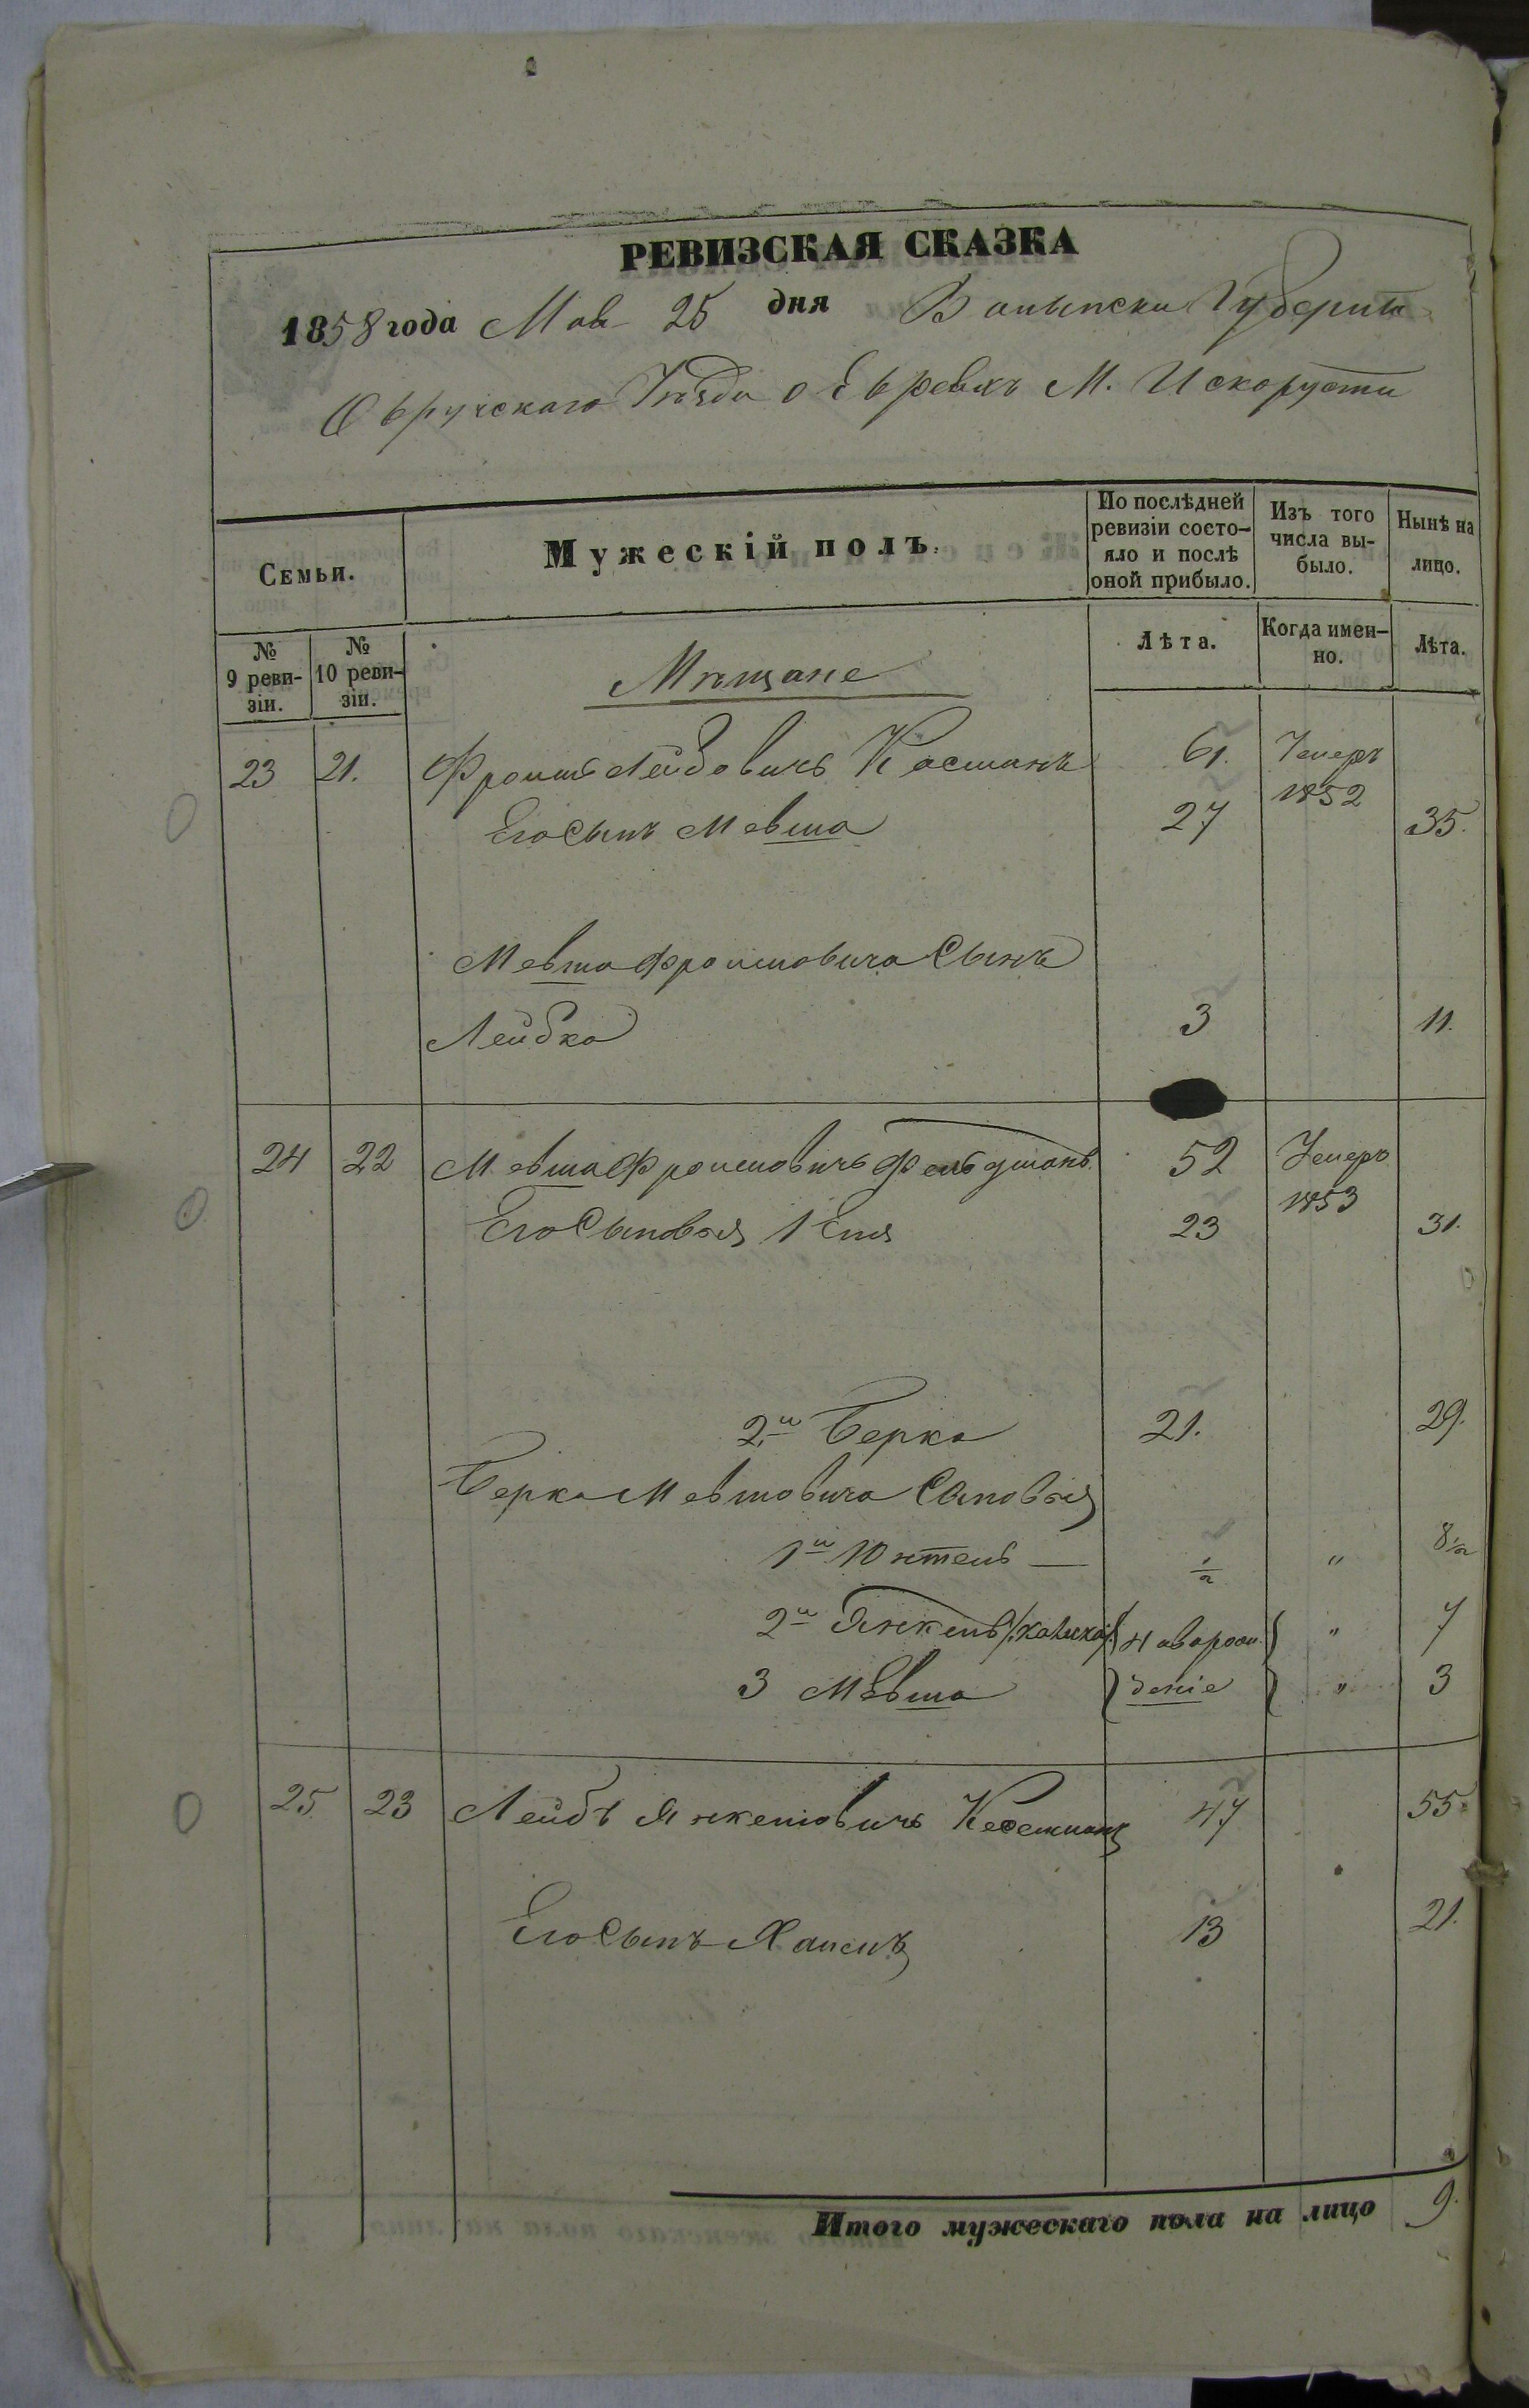 РЕВИЗСКАЯ СКАЗКА
1858 года Мая 25 дня Волынской Губерніи
Овручскаго Уѣзда о Евреяхъ М. Искорусти
Семьи.
Мужескій полъ.
По послѣдней ревизіи состояло и послѣ оной прибыло.
Изъ того числа выбыло.
Нынѣ на лицо.
№ 9 ревизіи.
№ 10 ревизіи.
Мѣщане
Лѣта.
Когда именно.
Лѣта.
23 21. Фроимъ Лейбовичъ 61. Умеръ 1852
Его Сынъ Мевша 27 35.
Мевша Фроимовича Сынъ
Лейбка 3 11.
24 22 Мевша Фроимовичъ Фельдманъ 52 Умеръ 1853
Его Сыновья 1 23 31.
2й Берка 21. 29.
Берка Мевшовича Сыновья
1й 1/2 " 8 1/2
2й Янкель новорож- " 7
3 Мевша деніе " 3
25 23 Лейбъ Янкелiовичъ 47 55.
Его Сынъ 13 21.
Итого мужескаго пола на лицо 9.